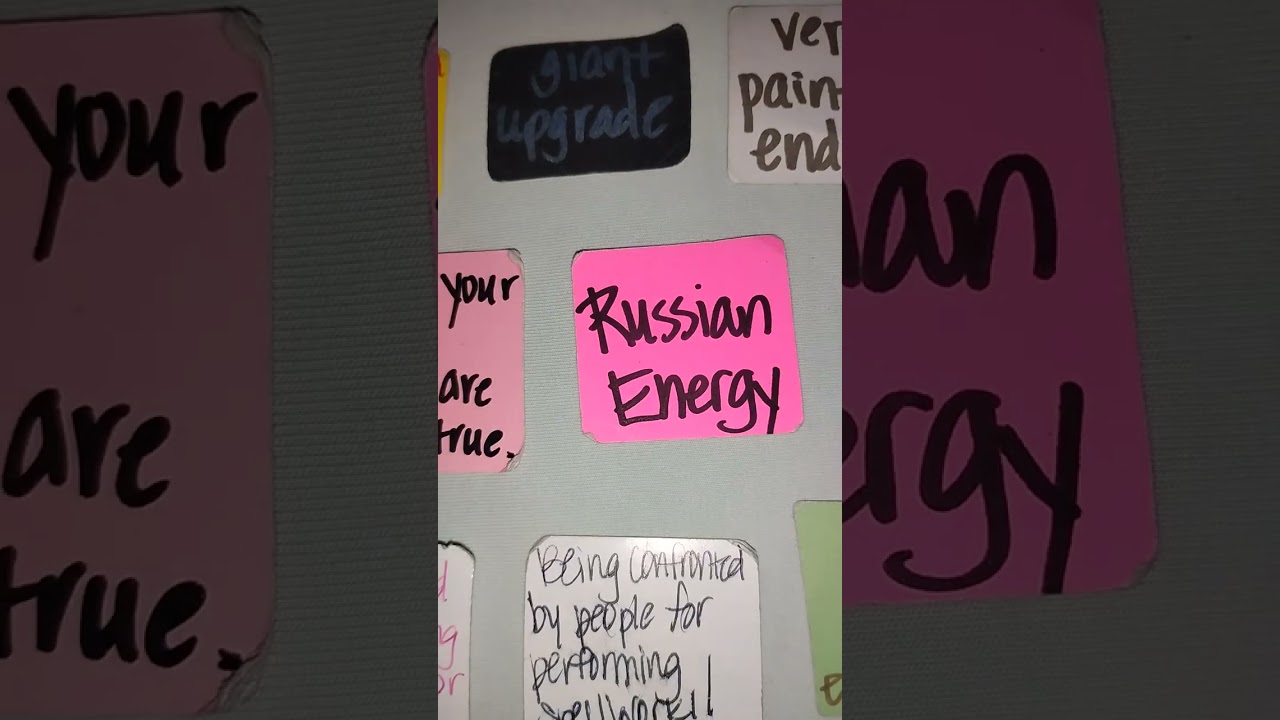 giant
upgrade
ver
pain
end
your
are
true.
Russian
Energy
Being confronted
by people for
performing
spellwork!!
your
are
true.
an
ergy